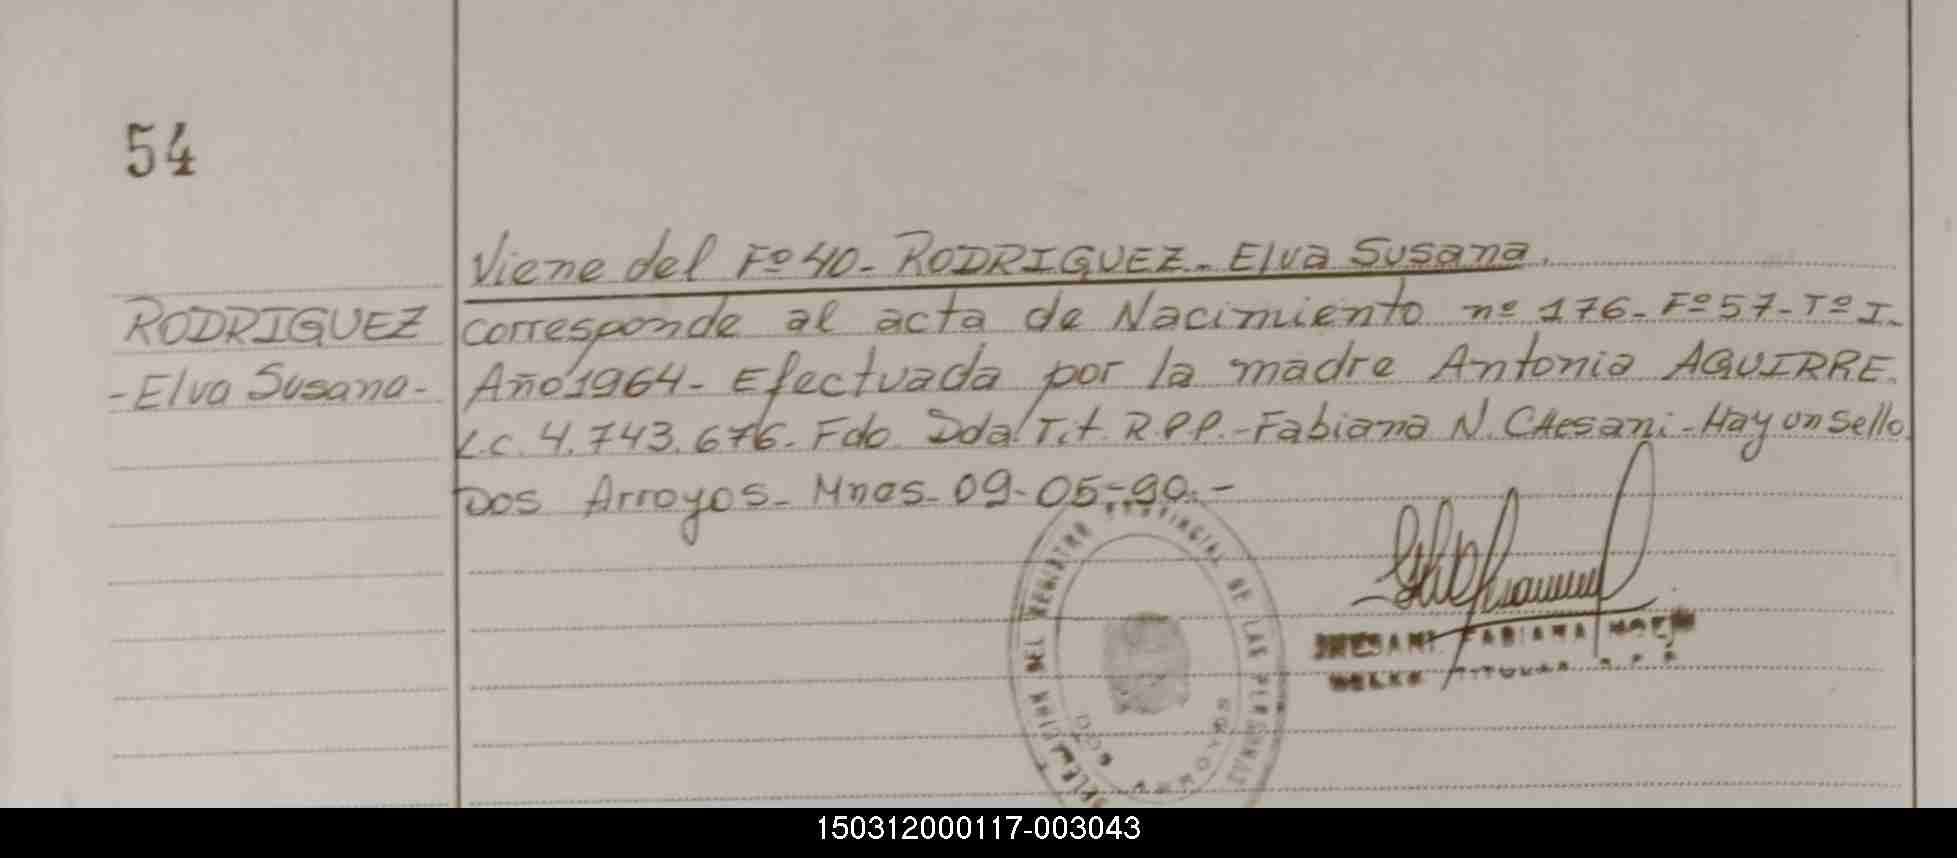 54
Viene del Fº 40- RODRIGUEZ- Elva Susana.
RODRIGUEZ
-Elva Susana-
corresponde al acta de Nacimiento nº 176- Fº 57- Tº I-
Año 1964- Efectuada por la madre Antonia AGUIRRE.
L.C. 4.743.676- Fdo. Dda. Tit. R.P.P.- Fabiana N. CHesani- Hay un Sello
Dos Arroyos- Mnes- 09-05-90.-
DELEGACION DEL REGISTRO PROVINCIAL DE LAS PERSONAS
DOS ARROYOS
CHESANI FABIANA NOEMI
TITULAR R.P.P.
150312000117-003043